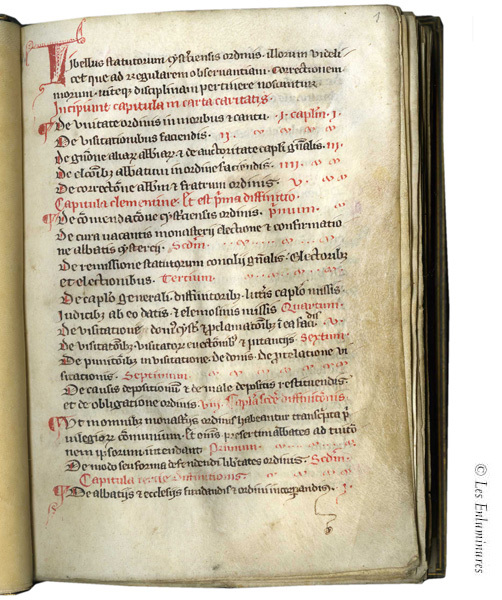 1
Libellus statutorum cysterciensis ordinis illorum videli
cet que ad regularem observantiam correctionem
morum utique disciplinam pertinere noscuntur
Incipiunt capitula in carta caritatis.
De unitate ordinis in moribus & cantu. i. caplm i.
De visitationibus faciendis. ii
De & de auctoritate capli gnalis. iii.
De elcõib; abbatum in ordine faciendis. iiii.
De correctõne abbm & fratrum ordinis. v.
Capitula clementine. Et est pma distinctio.
De cõmendatõne ordinis. pmum.
De cura vacantis monasterij electione & confirmatio
ne abbatis cystercij. Scdm.
De remissione statutorum concilij gnalis. Electorib;
et electionibus. Tertium.
De caplo generali. diffinitorib;. litteris caplo missis.
Iudicib; ab eo datis. & elemosinis missis Quartum.
De visitatione
De visitatorib; & pitancijs Sextum.
De punitorib; in visitatione. de donis. de vi
sitationis. Septimum
De causis depositionum & de male depositis restituendis.
et de obligatione ordinis. viii. Capla scde distinctionis
Ut in omnib; monasterijs ordinis habeantur transcripta p
uilegiorum cõmunium. Et omnes presertim abbates ad
nem ipsorum intendant Primum
De modo seu forma defendendi libertates ordinis. Scdm
Capitula tercie distinctionis
De abbatijs & ecclesijs fundandis & ordini incorporandis. i.
© Les Enluminures